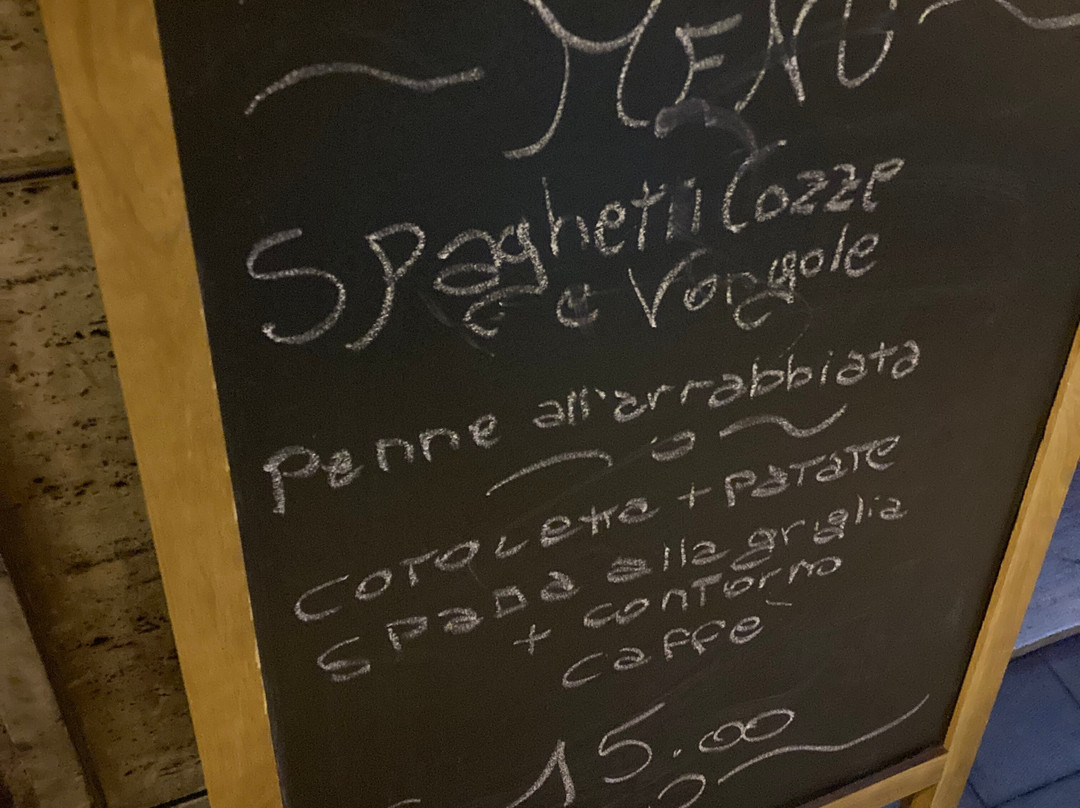 MENU
SPaghetti Cozze
e Vongole
Penne all'arrabbiata
COTOLETTa + PATATE
SPADA alla griglia
+ CONTORNO
Caffè
15.00